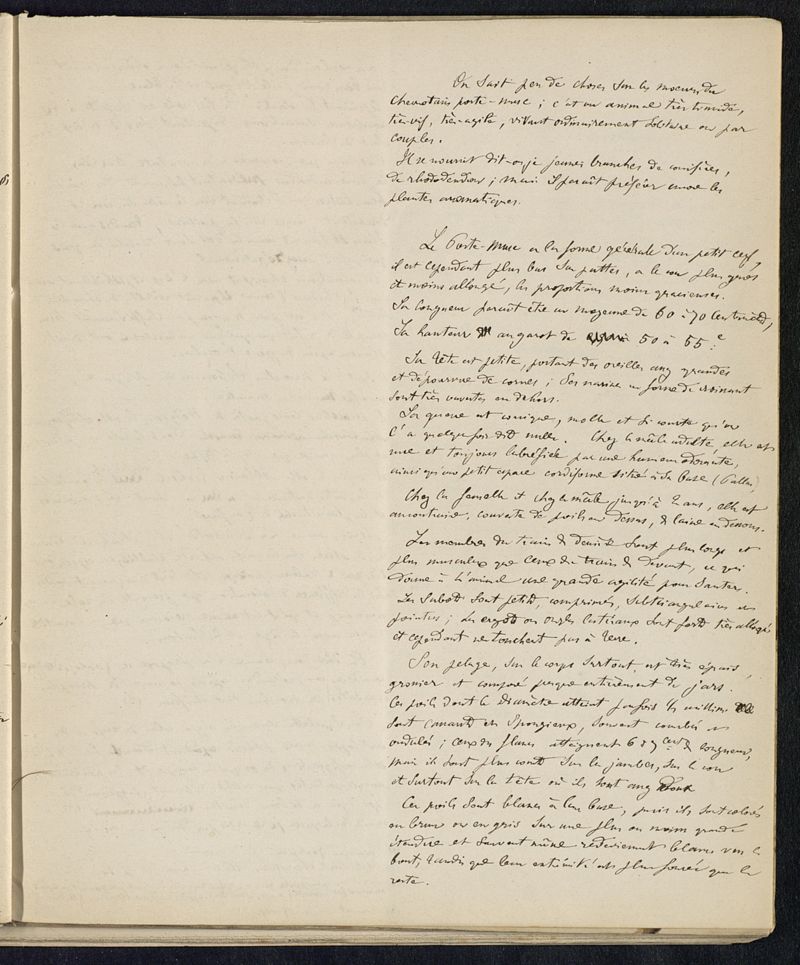 On sait peu de choses sur les moeurs du
Chevrotain porte-musc ; c'est un animal très timide,
très-vif, très-agile, vivant ordinairement solitaire ou par
couples.
Il se nourrit dit-on, de jeunes branches de conifères,
de rhododendron ; mais il paraît préférer encore les
plantes aromatiques.
Le Porte-Musc a la forme générale d'un petit cerf,
il est cependant plus bas sur pattes, a le cou plus gros
et moins allongé, les proportions moins gracieuses.
Sa longueur paraît être en moyenne de 60 à 70 centimètres,
Sa hauteur au garot de 50 à 55 c.
Sa tête est petite, portant des oreilles assez grandes
et dépourvue de cornes ; ses narines en forme de croissant
sont très ouvertes en dehors.
Sa queue est conique, molle et si courte qu'on
l'a quelquefois dit nulle. Chez le mâle adulte elle est
nue et toujours lubréfiée par une humeur odorante,
ainsi qu'un petit espace cordiforme situé à sa base (Pallas)
Chez la femelle et chez le mâle jusqu'à 2 ans, elle est
au contraire, couverte de poils en dessus, & laine en dessous.
Les membres du train de derrière sont plus longs et
plus musculeux que ceux du train de devant, ce qui
donne à l'animal une grande agilité pour sauter.
Les sabots sont petits, comprimés, subtriangulaires et
pointus ; les ergots ou ongles latéraux sont forts très allongés
et cependant ne touchent pas à terre.
Son pelage, sur le corps surtout, est très épais,
grossier et composé presque entièrement de jars.
Les poils dont le diamètre atteint parfois 1/2 millim.
sont cassants et spongieux, souvent courbés et
ondulés ; ceux des flancs atteignent 6 à 7 cent. de longueur,
mais ils sont plus courts sur les jambes, sur le cou
et surtout sur la tête où ils sont assez doux
Ces poils sont blancs à leur base, puis ils sont colorés
en brun ou en gris sur une plus ou moins grande
étendue et souvent même redeviennent blancs vers le
bout, tandis que leur extrémité est plus foncée que le
reste.